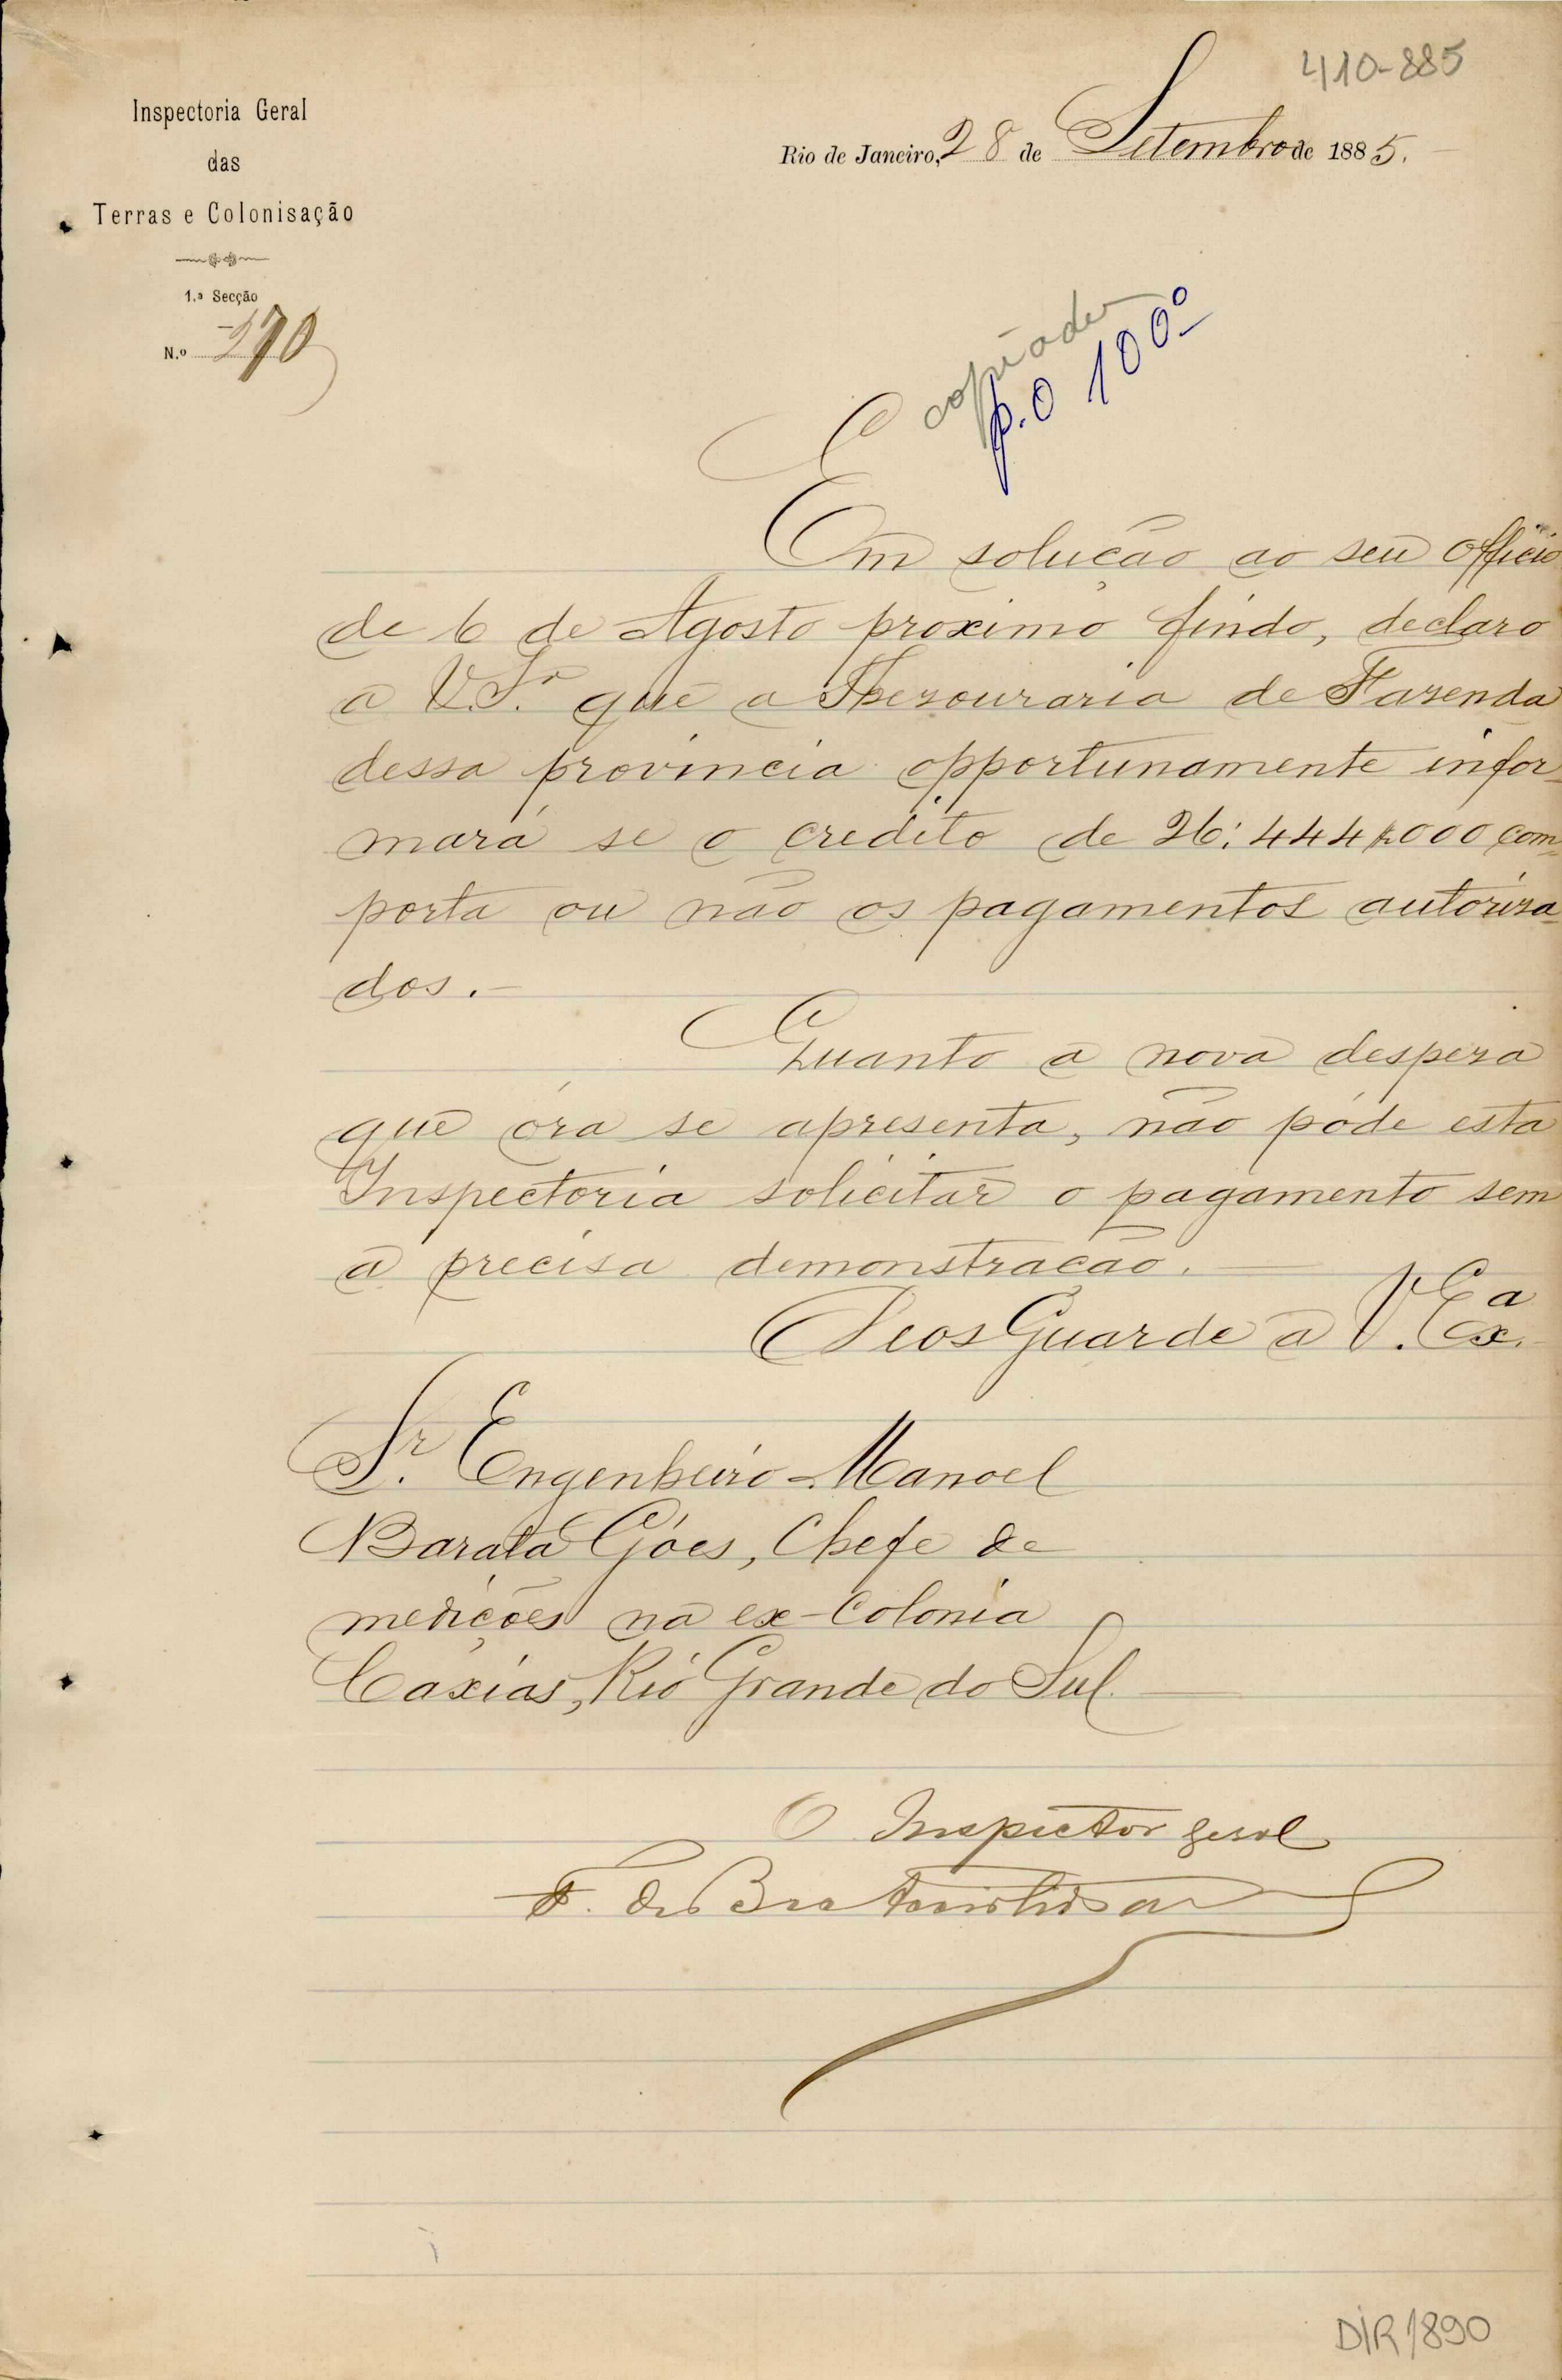 410-885
Inspectoria Geral
das
Terras e Colonisação
1.ª Secção
N.º 270
Rio de Janeiro, 28 de Setembro de 1885.
copiado
p.o 100º
Em solução ao seu officio
de 6 de Agosto proximo findo, declaro
a V.Sª que a Thesouraria de Fazenda
dessa provincia opportunamente infor-
mará se o credito de 26:444$000 com-
porta ou não os pagamentos autorisa-
dos.—
Quanto a nova despeza
que óra se apresenta, não póde esta
Inspectoria solicitar o pagamento sem
a precisa demonstração.—
Deos Guarde a V. Exª
Sr. Engenheiro Manoel
Barata Góes, Chefe de
medições na ex-Colonia
Caxias, Rio Grande do Sul.—
O Inspector geral
F. de
DIR/890